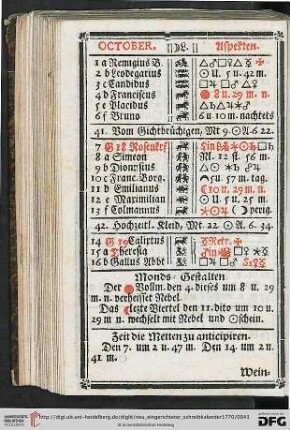 OCTOBER. ☊ ☾L. ☊ Aspekten.
1 a Remigius B.
2 b Leodegarius ☉ U. 5 u. 42 m.
3 c Candidus
4 d Franciscus ● 8 u. 29 m. n.
5 e Placidus
6 f Bruno 6 u 10 m. nachets
41. Vom Gichtbrüchigen, Mt 9 ☉ A. 6 22.
7 G 18 Rosenkrf
8 a Simeon Nl. 12 st. 56 m.
9 b Dionysius
10 c Franc. Borg. 5 u. 57 m. tag.
11 d Emilianus ☾ 10 u. 29 m. n.
12 e Maximilian ☉ U. 5 u. 25 m.
13 f Colmannus perig.
42. Hochzeitl. Kleid, Mt. 22 ☉ A. 6. 34.
14 G 19 Calixtus Retr.
15 a Theresia
16 b Gallus Abbt
Monds-Gestalten
Der ● Vollm. den 4. dieses um 8 u. 29
m. n. verheisset Nebel.
Das letzte Viertel den 11. dito um 10 u.
29 m. n. wechselt mit Nebel und ☉schein.
Zeit die Metten zu anticipiren.
Den 7. um 2 u. 47 m. Den 14 um 2 u.
41 m.
Wein-
http://digi.ub.uni-heidelberg.de/diglit/neu_eingerichteter_schreibkalender1770/0043
© Universitätsbibliothek Heidelberg
UNIVERSITÄTS-
BIBLIOTHEK
HEIDELBERG
gefördert durch die
DFG